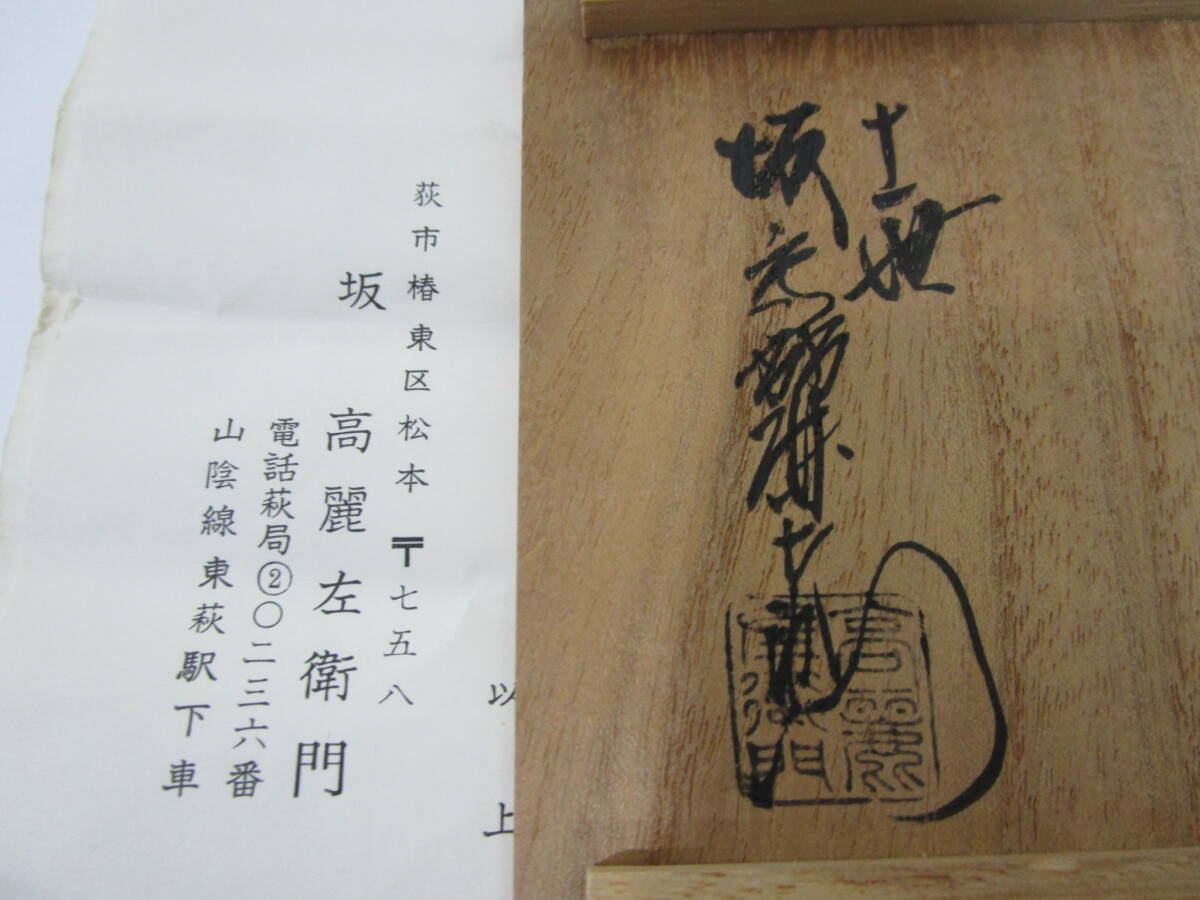 十一世
坂高麗左衛門
高麗
左衛門
以上
荻市椿東区松本〒七五八
坂 高麗左衛門
電話萩局②〇二三六番
山陰線東萩駅下車